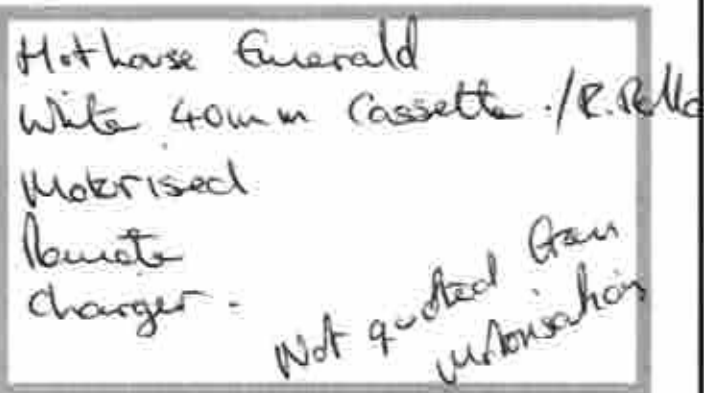 Hothouse Emerald
White 40mm Cassette ./R.Roll
Motorised
Remote
Charger.
Not quoted
motorisation